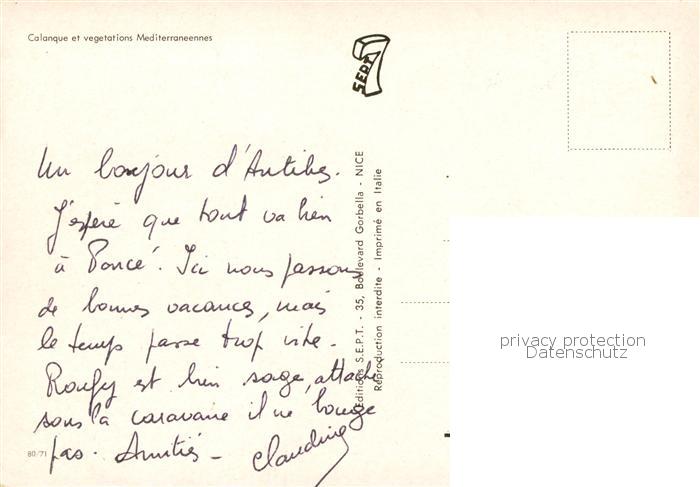 Calanque et vegetations Mediterraneennes
SEPT
Un bonjour d'Antibes.
J'espère que tout va bien
à Poncé. Ici nous passons
de bonnes vacances, mais
le temps passe trop vite -
est bien sage, attaché
sous la caravane il ne bouge
pas. Amitiés - Claudine
80/71
Editions S.E.P.T. - 35, Boulevard Gorbella - NICE
Reproduction interdite - Imprimé en Italie
privacy protection
Datenschutz